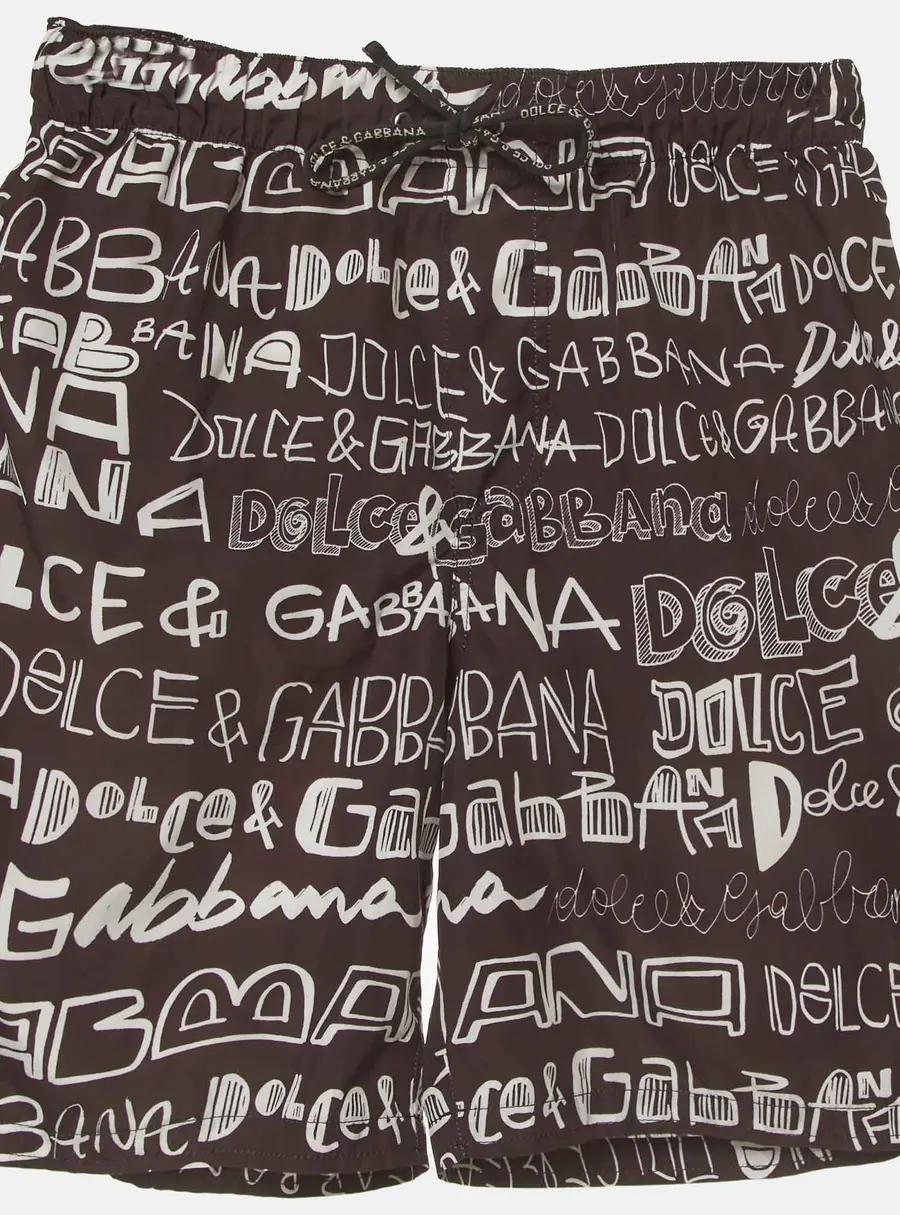 Gabbana dolce & Gabbana
DOLCE & GABBANA DOLCE &
GABBANA
BANA DOLCE & GABBA
GABBANA DOLCE & GABBANA DOLCE
GABBANA DOLCE & GABBANA Dolce &
NA DOLCE & GABBANA DOLCE & GABBANA
ANA DOLCE & GABBANA dolce &
LCE & GABBANA DOLCE
DOLCE & GABBANA DOLCE
DOLCE & GABBANA Dolce
Gabbana dolce & Gabbana
ABBANA DOLCE
BANA DOLCE & GABBANA